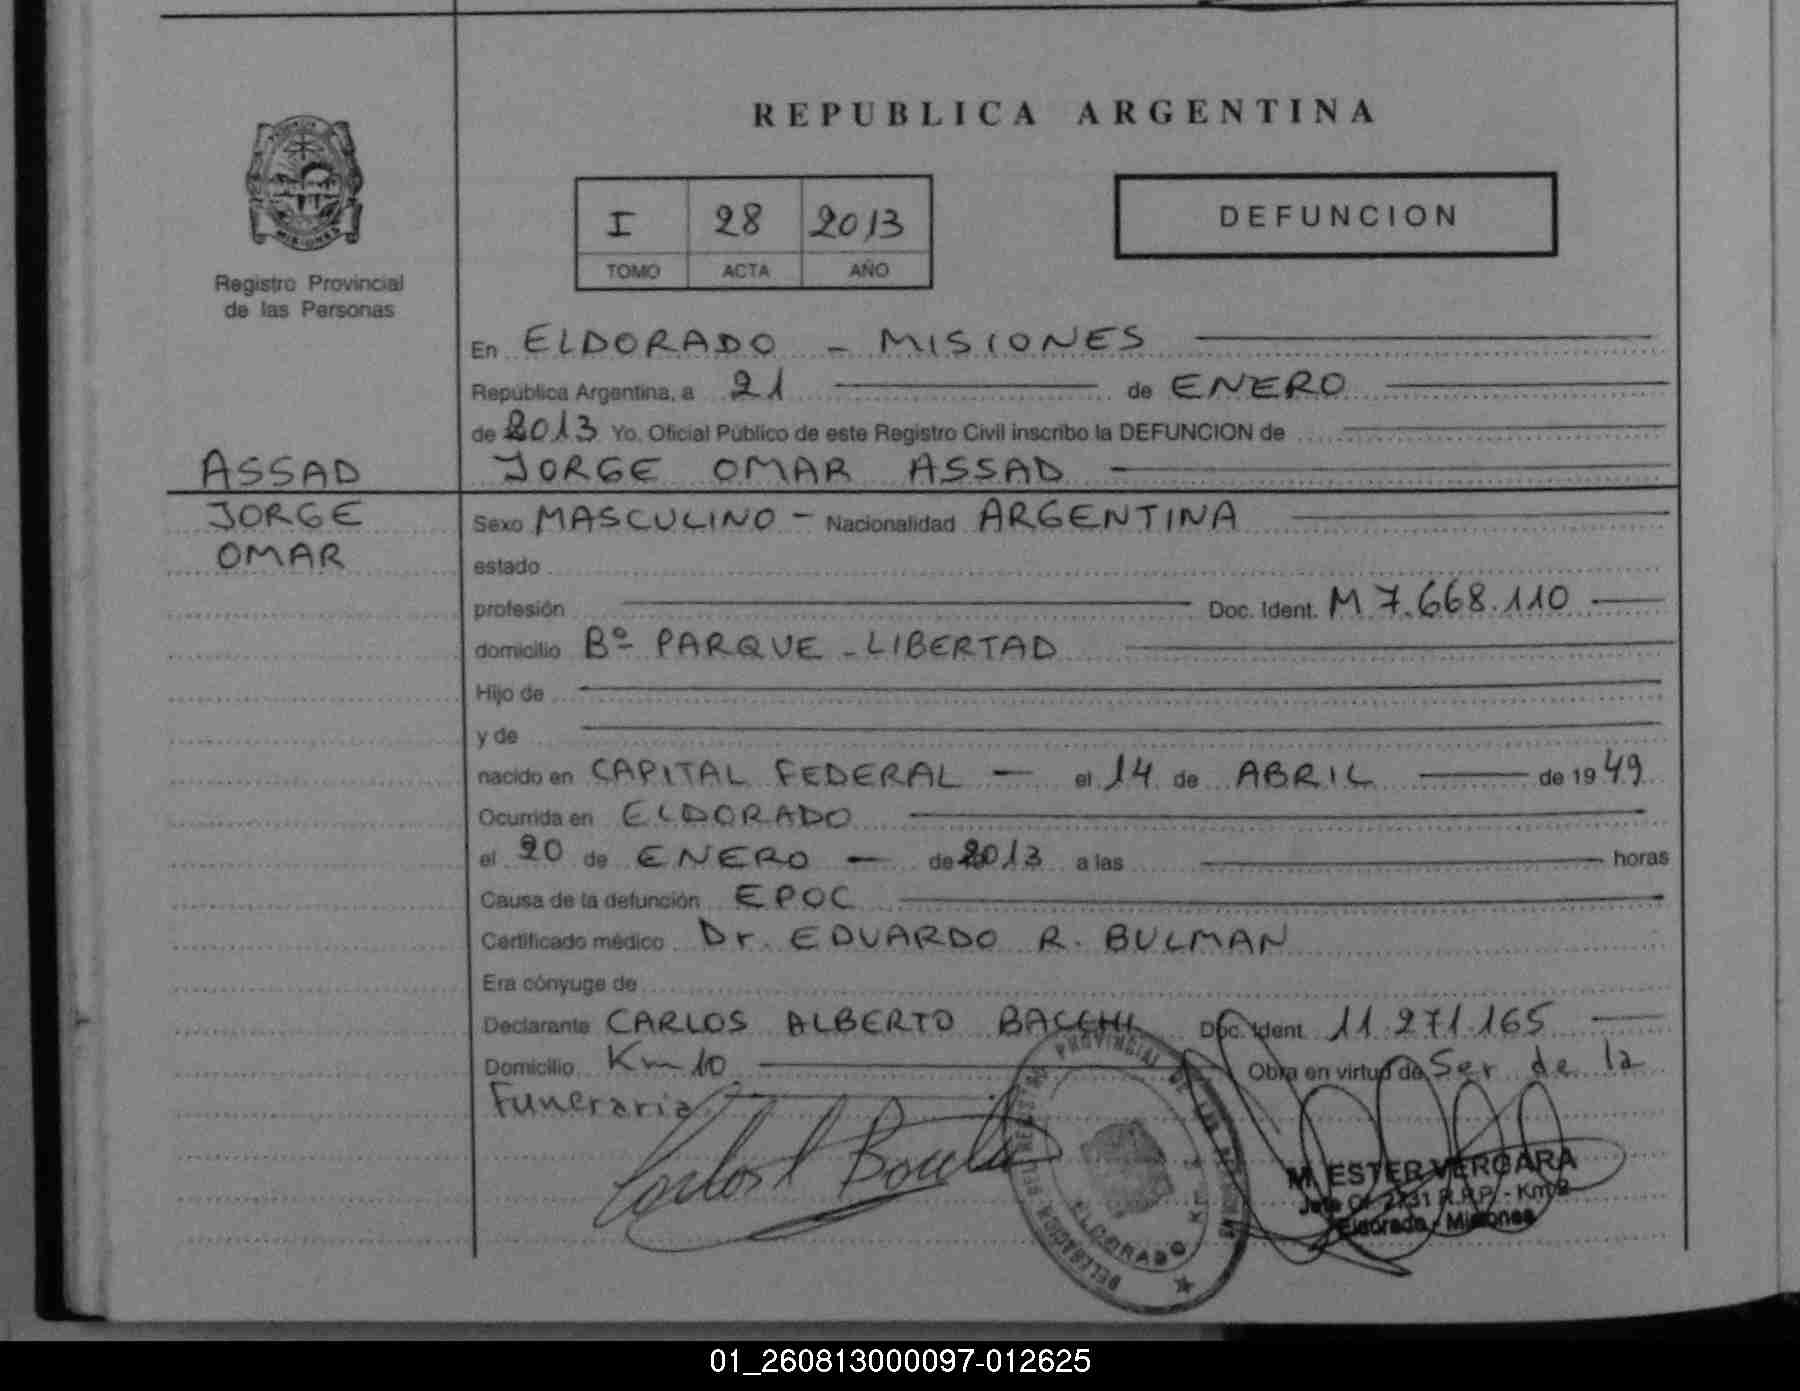 REPUBLICA ARGENTINA
I 28 2013
TOMO ACTA AÑO
DEFUNCION
MISIONES
Registro Provincial
de las Personas
En ELDORADO - MISIONES
República Argentina, a 21 de ENERO
de 2013 Yo, Oficial Público de este Registro Civil inscribo la DEFUNCION de
ASSAD
JORGE
OMAR
JORGE OMAR ASSAD
Sexo MASCULINO - Nacionalidad ARGENTINA
estado
profesión Doc. Ident. M 7.668.110
domicilio Bº PARQUE - LIBERTAD
Hijo de
y de
nacido en CAPITAL FEDERAL - el 14 de ABRIL de 1949
Ocurrida en ELDORADO
el 20 de ENERO - de 2013 a las horas
Causa de la defunción EPOC
Certificado médico Dr. EDUARDO R. BULMAN
Era cónyuge de
Declarante CARLOS ALBERTO BACCHI Doc. Ident. 11.271.165
Domicilio Km 10 Obra en virtud de Ser de la
Funeraria
PROVINCIAL DE LAS PERSONAS
DELEGACION DEL REGISTRO
ELDORADO
M. ESTER VERGARA
Jefe Of. 2231 R.P.P. - Km 2
Eldorado - Misiones
01_260813000097-012625